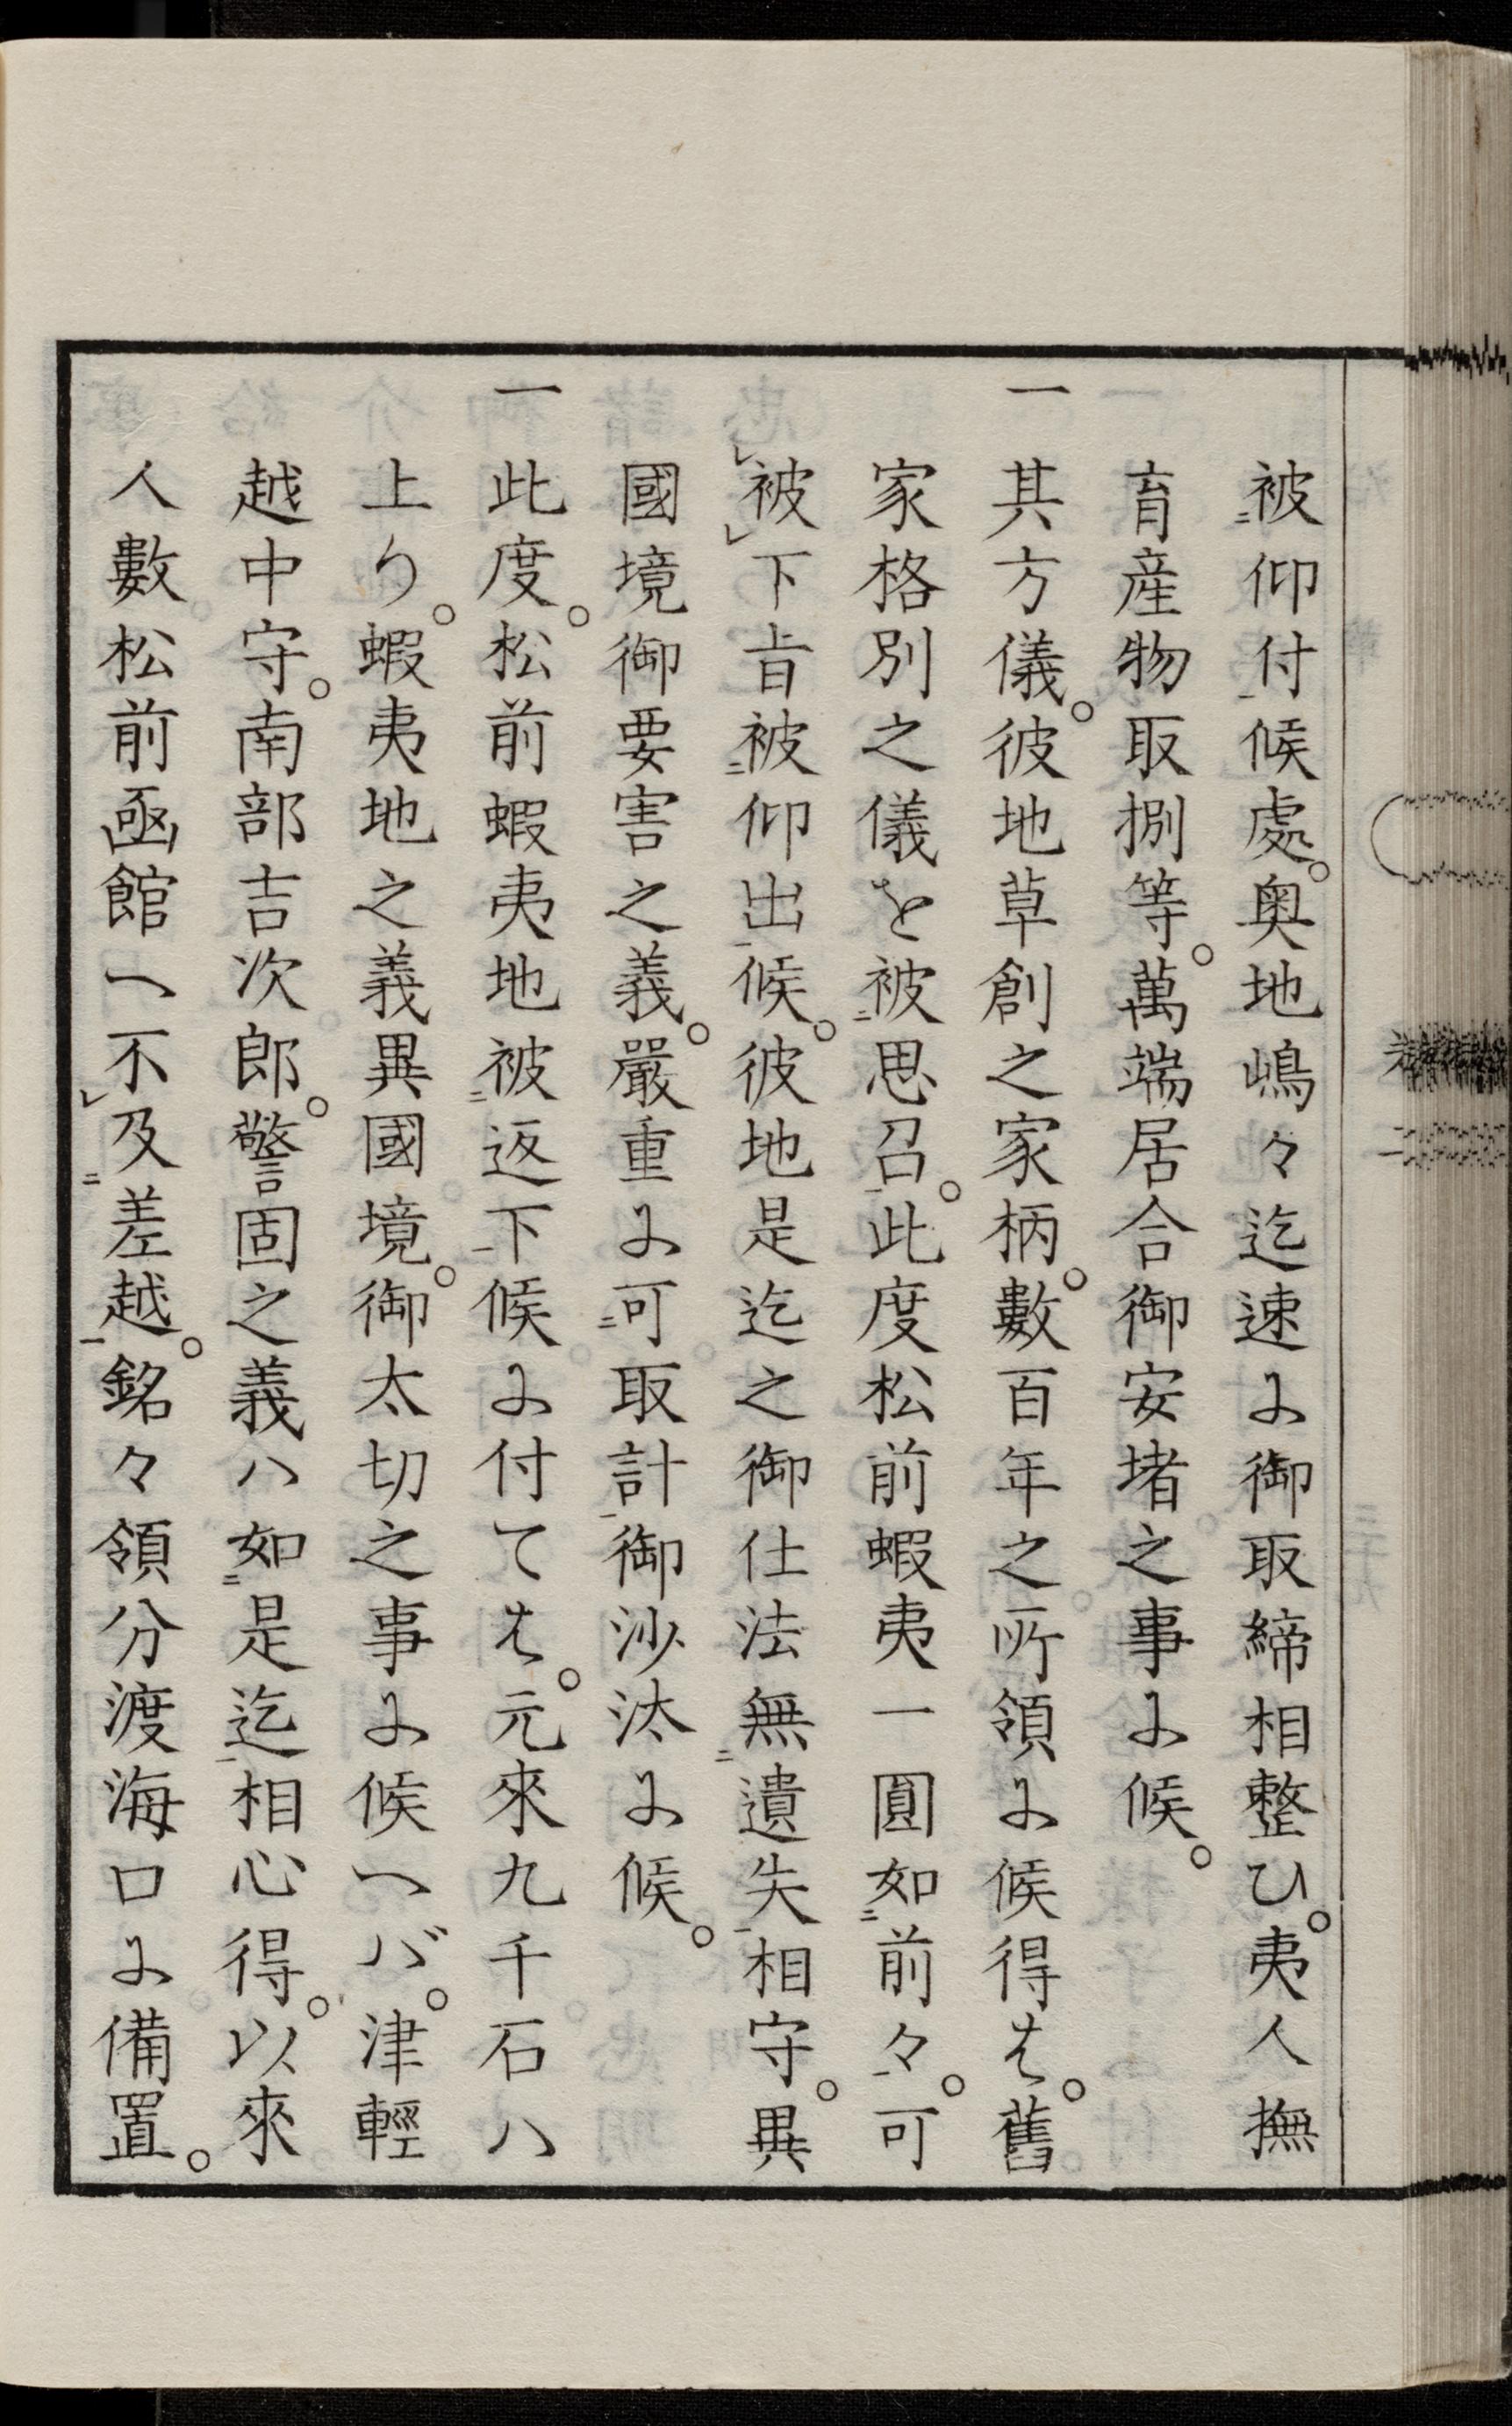 被仰付候處。奧地嶋々迄速に御取締相整ひ。夷人撫
育産物取捌等。萬端居合御安堵之事に候。
一 其方儀。彼地草創之家柄。數百年之所領に候得は。舊
家格別之儀を被思召。此度松前蝦夷一圓如前々。可
被下旨被仰出候。彼地是迄之御仕法無遺失相守。異
國境御要害之義。嚴重に可取計御沙汰に候。
一 此度。松前蝦夷地被返下候に付ては。元來九千石ハ
上り。蝦夷地之義異國境。御太切之事に候ヘバ。津輕
越中守。南部吉次郎。警固之義ハ如是迄相心得。以來
人數松前凾館ヘ不及差越。銘々領分渡海口に備置。